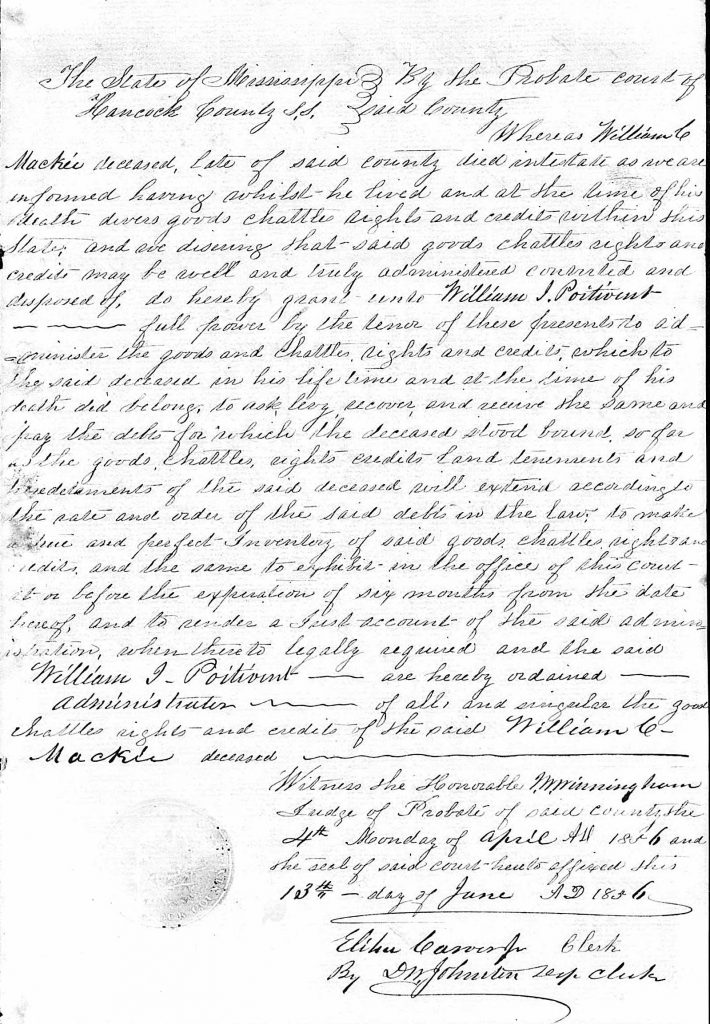 The State of Mississippi } By the Probate court of
Hancock County S.S. } said County
Whereas William C
Mackie deceased, late of said county died intestate as we are
informed having whilst he lived and at the time of his
death divers goods chattles rights and credits within this
State; and we desiring that said goods chattles rights and
credits may be well and truly administered converted and
disposed of, do hereby grant unto William J. Poitivent
full power by the tenor of these presents to ad-
=minister the goods and chattles, rights and credits, which to
the said deceased in his life time and at the time of his
death did belong, to ask levy, recover, and receive the same and
pay the debts for which the deceased stood bound, so far
as the goods, chattles, rights credits land tenements and
of the said deceased will extend according to
the rate and order of the said debts in the law; to make
a true and perfect Inventory of said goods chattles rights and
credits, and the same to exhibit in the office of this court
at or before the expiration of six months from the date
hereof, and to render a Just account of the said admin-
istration, when thereto legally required and the said
William J. Poitivent are hereby ordained
administrator of all, and singular the good
chattles rights and credits of the said William C
Mackie deceased
Witness the Honorable Winningham
Judge of Probate of said county, the
4th Monday of April AD 1856 and
the seal of said court hereto affixed this
13th day of June AD 1856.
Elihu Carver Jr Clerk
By D W Johnston Dep Clerk